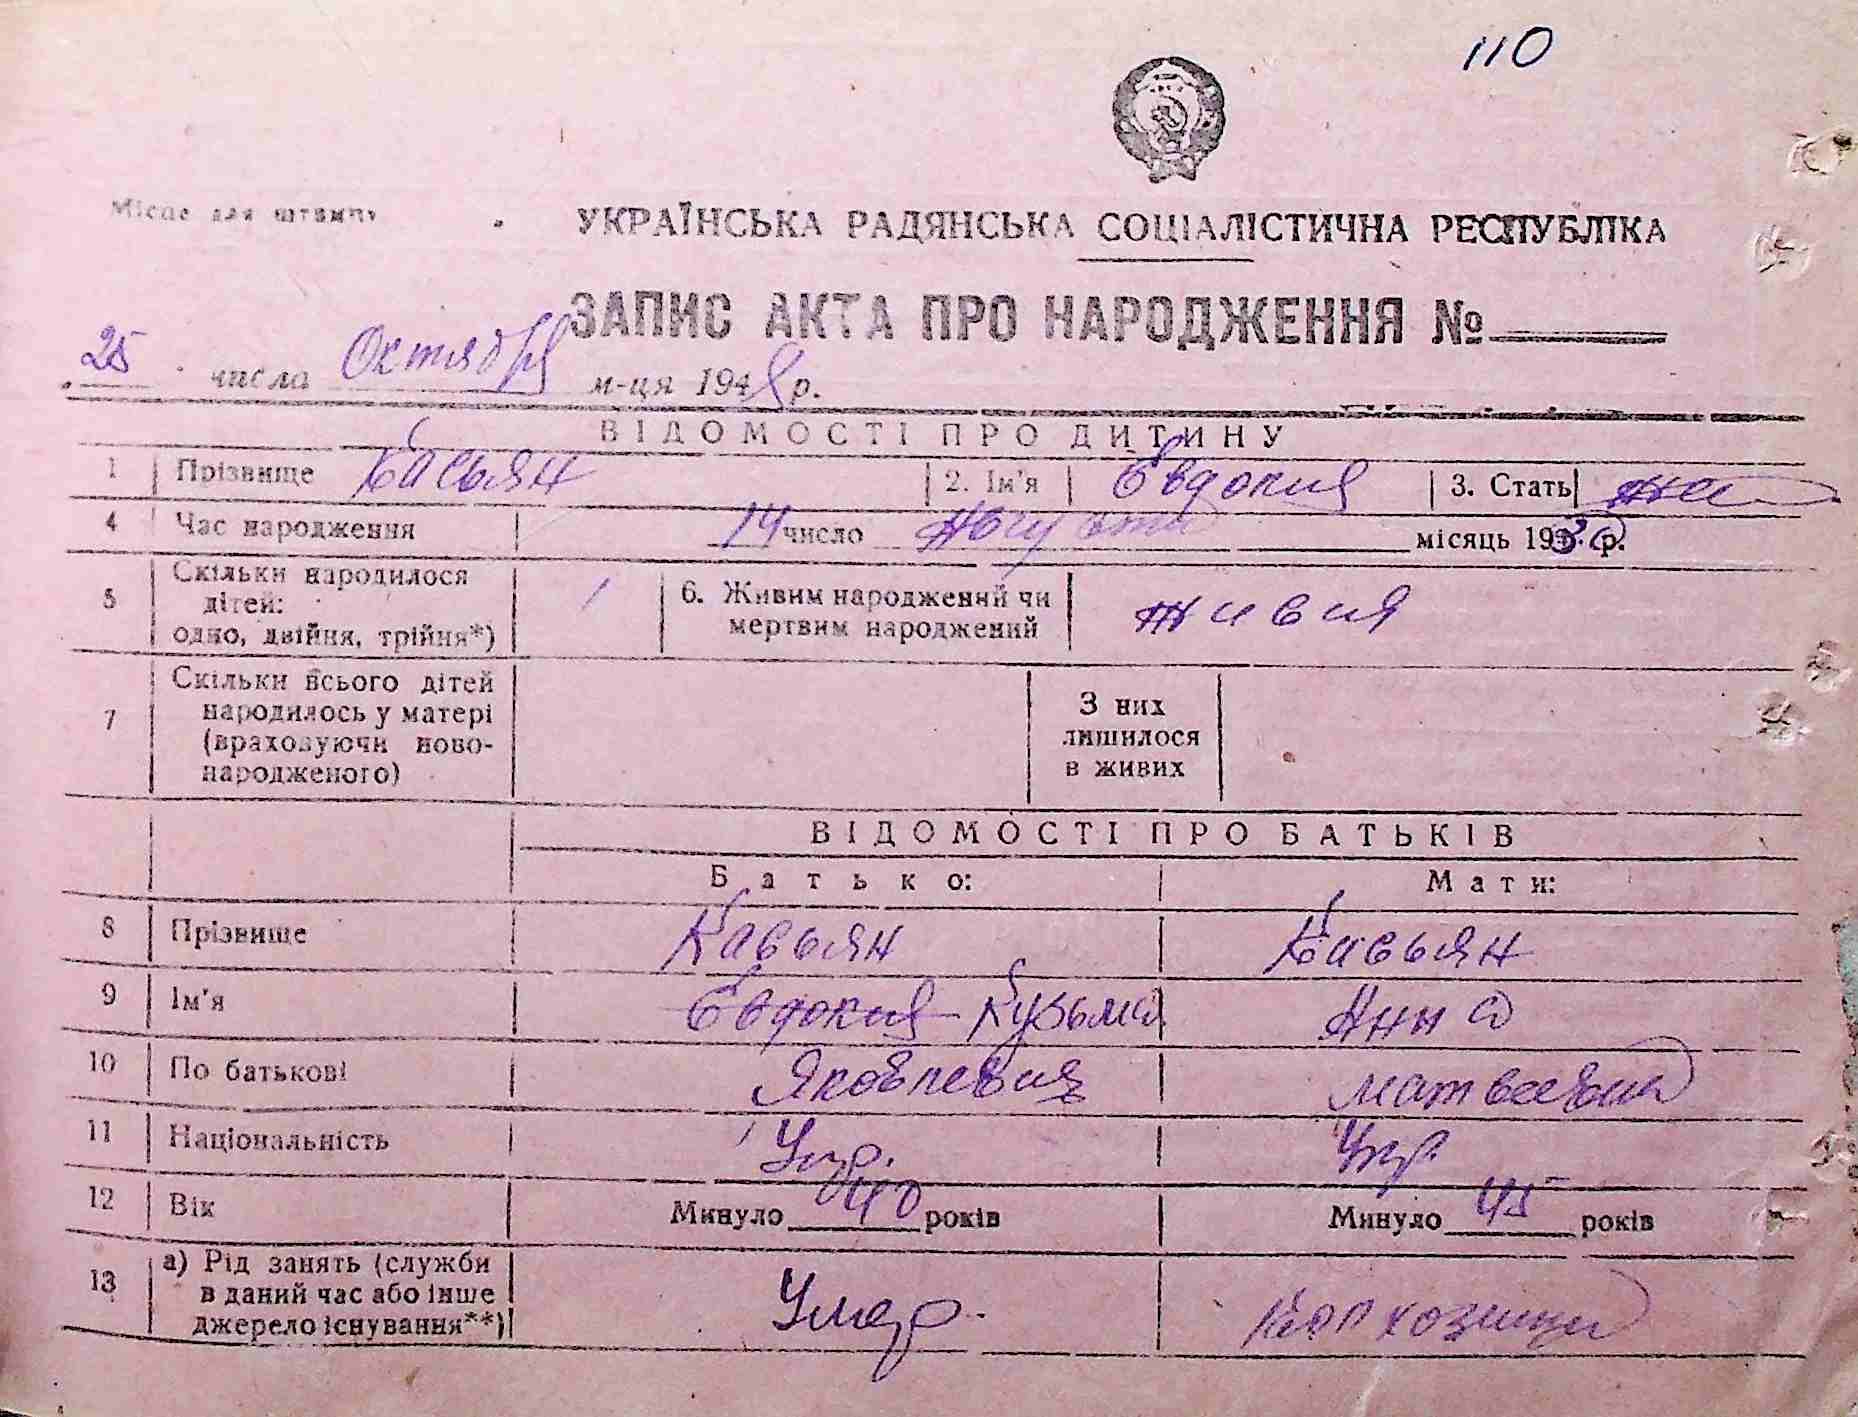 110
Місце для штампу
УКРАЇНСЬКА РАДЯНСЬКА СОЦІАЛІСТИЧНА РЕСПУБЛІКА
ЗАПИС АКТА ПРО НАРОДЖЕННЯ №
25 числа Октября м-ця 1948 р.
ВІДОМОСТІ ПРО ДИТИНУ
1 Прізвище Касьян 2. Ім'я Евдокия 3. Стать жен
4 Час народження 14 число Августа місяць 193 р.
5 Скільки народилося дітей: одно, двійня, трійня*) 1 6. Живим народжений чи мертвим народжений живия
7 Скільки всього дітей народилось у матері (враховуючи новонародженого) З них лишилося в живих
ВІДОМОСТІ ПРО БАТЬКІВ
Батько: Мати:
8 Прізвище Касьян Касьян
9 Ім'я Евдокия Кузьма Анна
10 По батькові Яковлевич Матвеевна
11 Національність Укр. Укр.
12 Вік Минуло 40 років Минуло 45 років
13 а) Рід занять (служби в даний час або інше джерело існування**) Умер. Колхозница